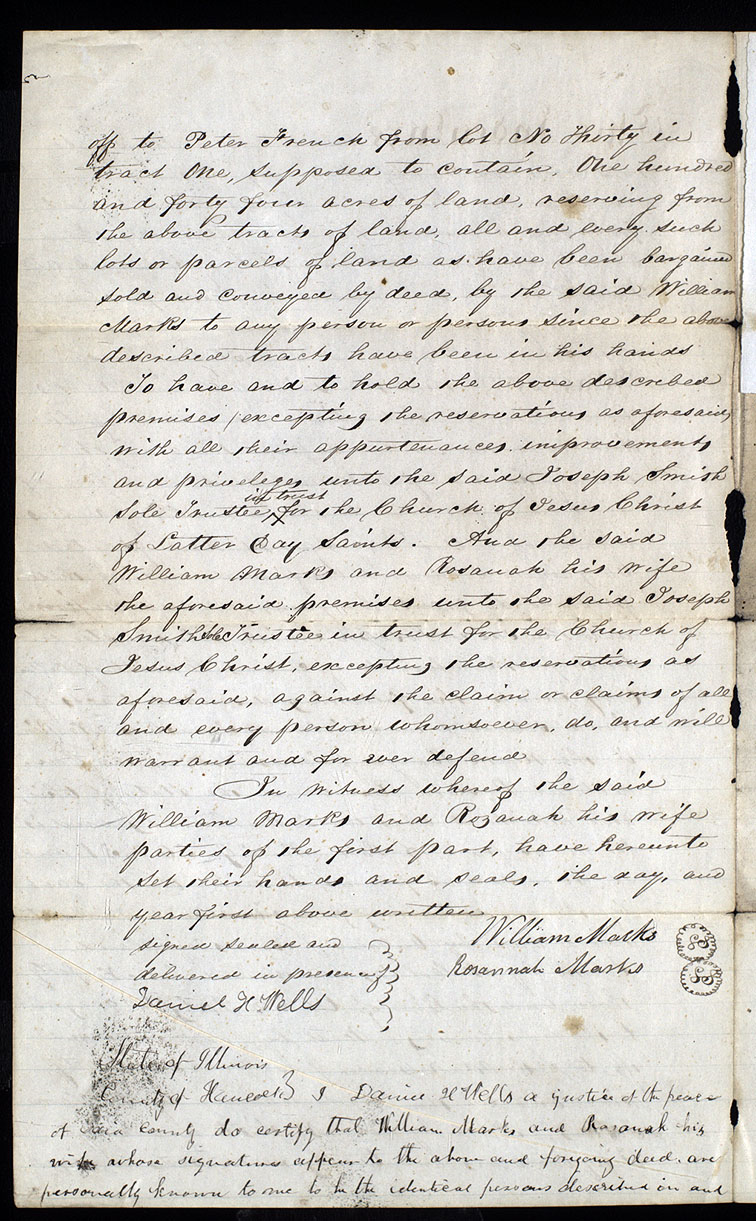 off to Peter French from lot No Thirty in
tract One, supposed to contain, One hundred
and forty four acres of land, reserving from
the above tracts of land, all and every such
lots or parcels of land as have been bargained
sold and conveyed by deed, by the said William
Marks to any person or persons since the above
described tracts have been in his hands
To have and to hold the above described
premises (excepting the reservations as aforesaid)
with all their appurtenances improvements
and priveleges unto the said Joseph Smith
in trust
Sole Trustee, for the Church of Jesus Christ
of Latter Day Saints. And the said
William Marks and Rosanah his wife
the aforesaid premises unto the said Joseph
Smith Sole Trustee in trust for the Church of
Jesus Christ, excepting the reservations as
aforesaid, against the claim or claims of all
and every person whomsoever, do, and will
warrant and for ever defend
In witness whereof the said
William Marks and Rozanah his wife
parties of the first part, have hereunto
set their hands and seals, the day, and
year first above written
signed sealed and
delivered in presence of
Daniel H Wells
William Marks
Rosannah Marks
State of Illinois
County of Hancock } I Daniel H Wells a justice of the peace
of said County do certify that William Marks and Rosanah his
wife whose signatures appear to the above and forgoing deed are
personally known to me to be the identical persons described in and